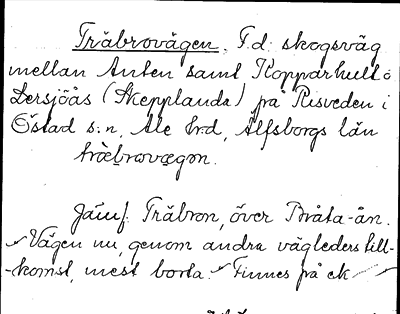 Träbrovägen. F.d. skogsväg
mellan Anten samt Kopparhult o
Dersjöås (Skepplanda) på Risveden i
Östad s:n, Ale hrd, Älfsborgs län
træ̀brovægon.
Jämf. Träbron, över Bråta-ån.
Vägen nu, genom andra vägleders till-
-komst, mest borta. Finnes på ek